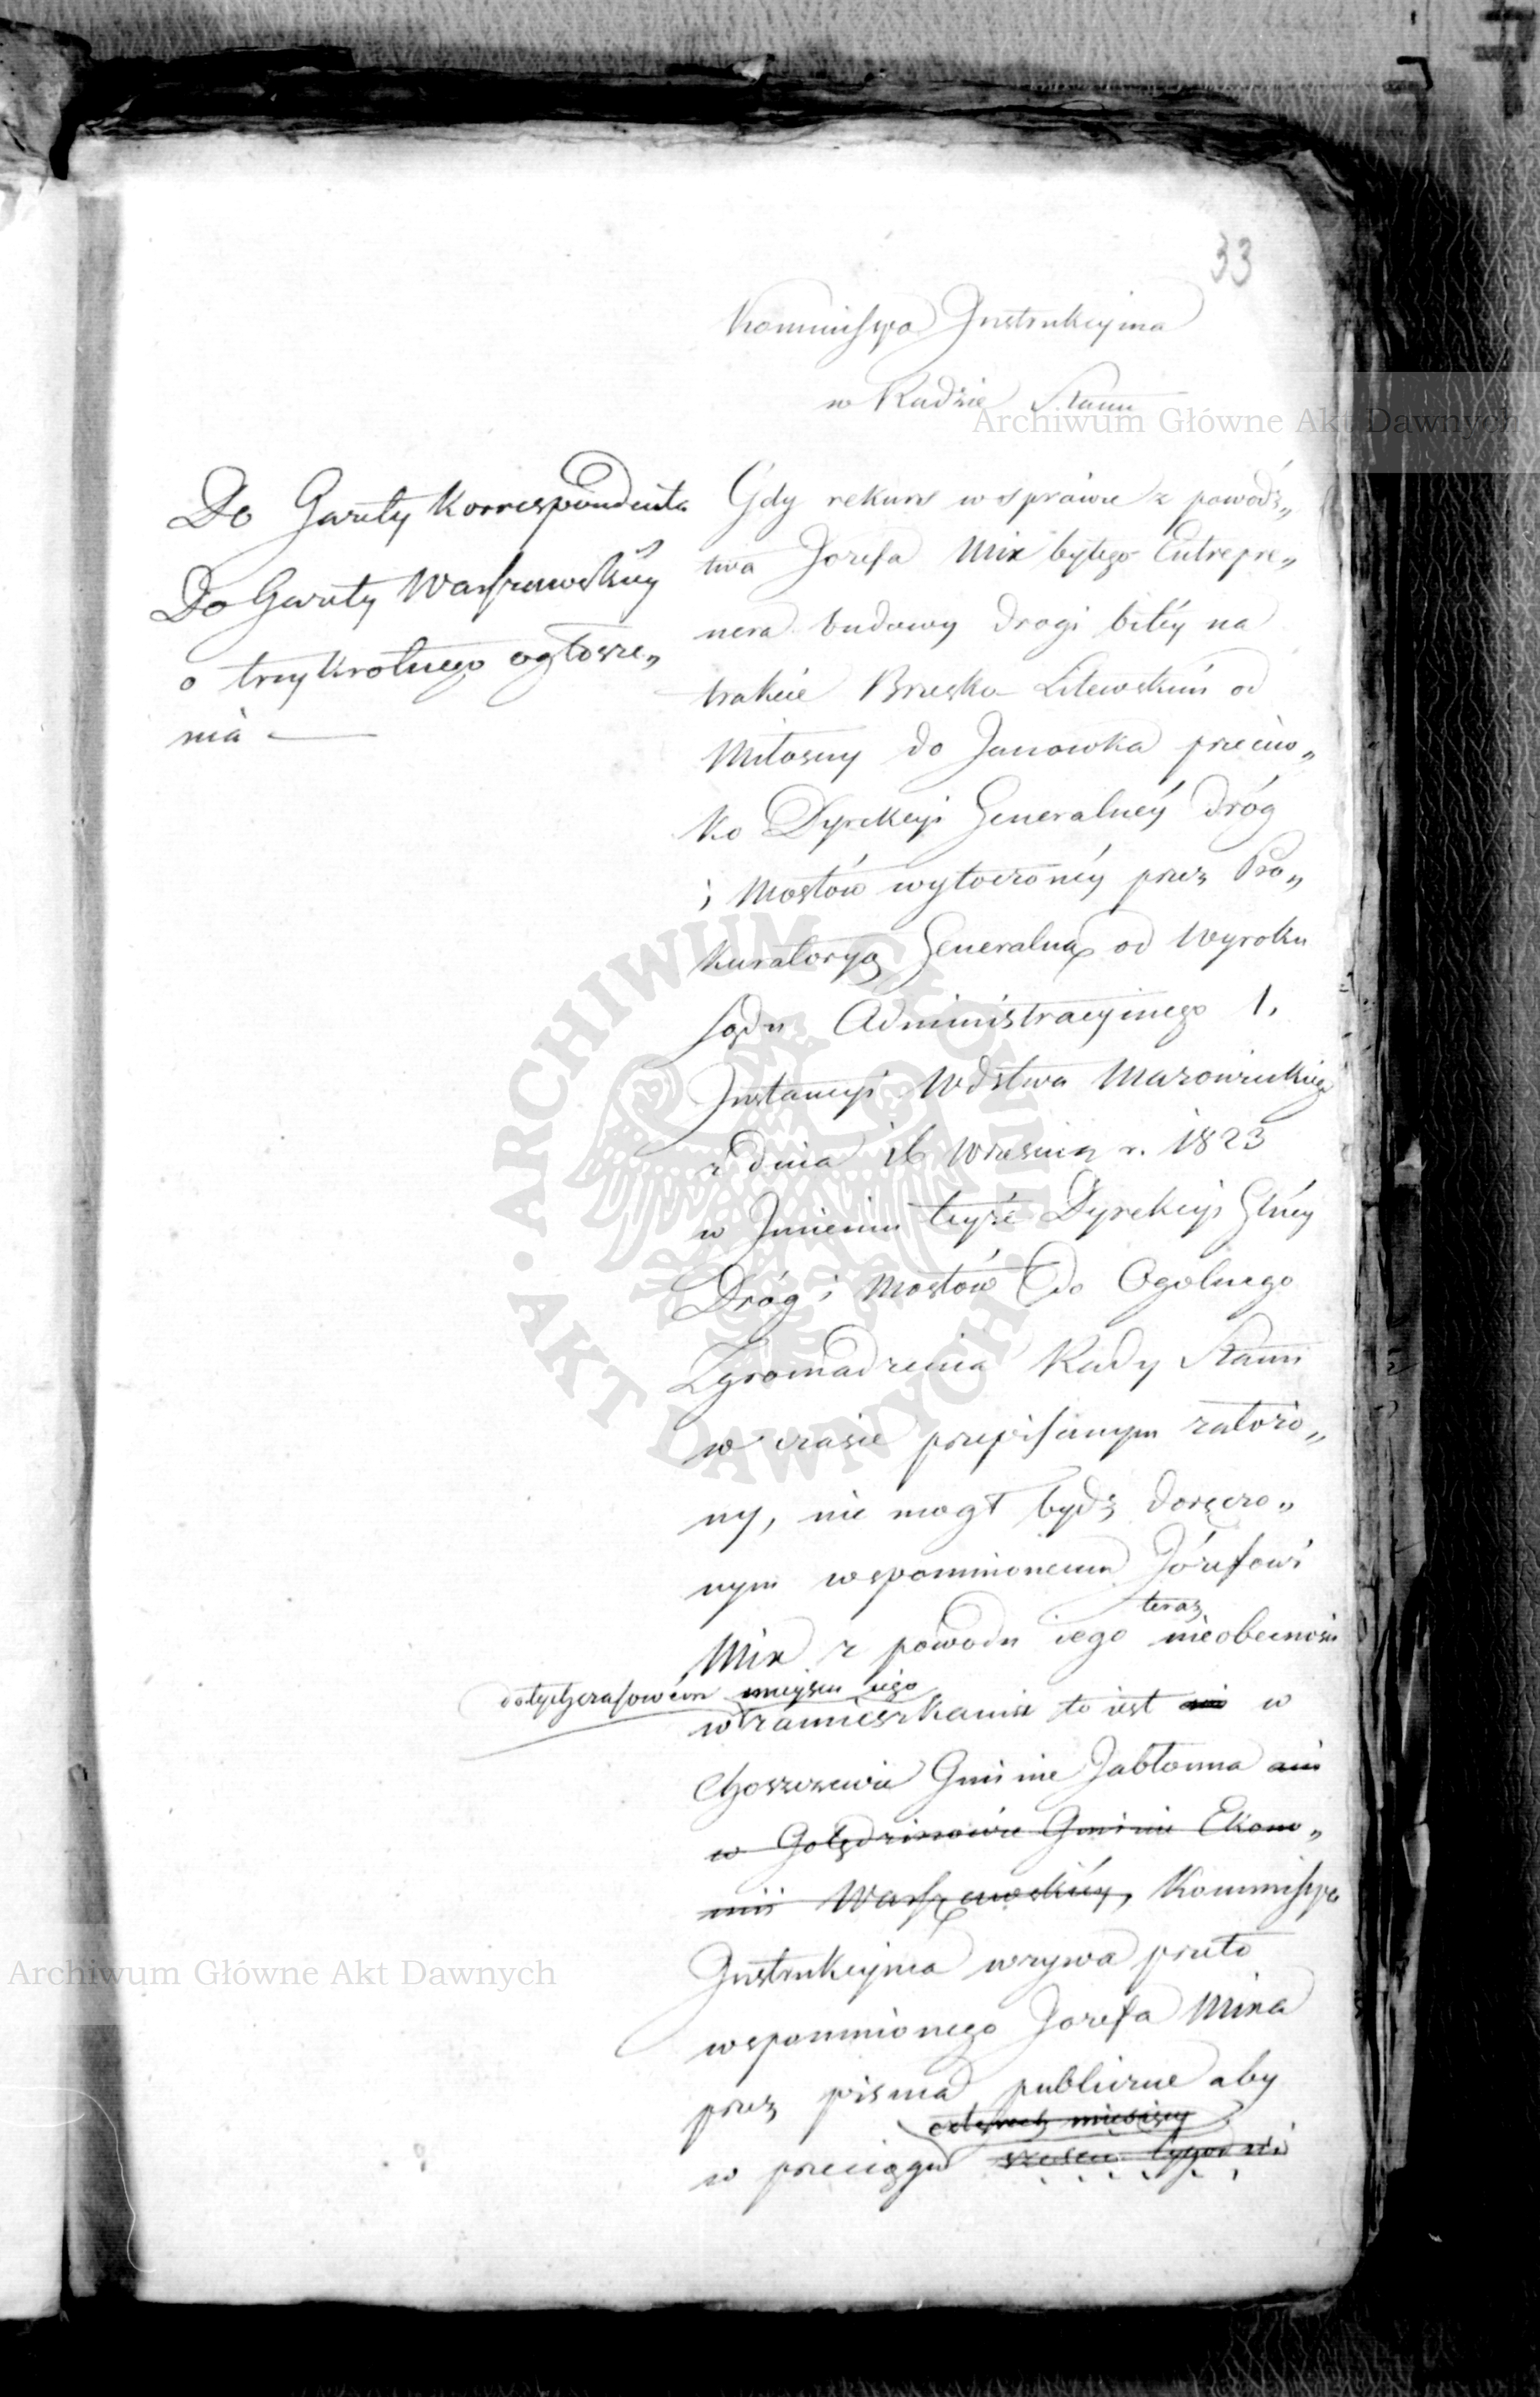 33
Kommissya Instrukcyina
w Radzie Stanu
Do Gazety Korrespondenta
Do Gazety Warszawskiey
o trzykrotnego ogłosze„
nia —
Gdy rekurs w sprawie z powódz„
twa Jozefa Mix byłego Entrepre„
nera budowy drogi bitéy na
trakcie Brzesko Litewskim od
Miłosny do Janowka przeciw„
ko Dyrekcyi Generalnéy Dróg
i Mostów wytoczonéy przez Pro„
kuratoryą Generalną od Wyroku
Sądu Administracyinego 1.
Instancyi Wdztwa Mazowieckiego
z dnia 16 Września r. 1823
w Imieniu teyże Dyrekcyi Głnéy
Dróg i Mostów do Ogólnego
Zgromadzenia Rady Stanu
w czasie przepisanym założo„
ny, nie mogł bydź doręczo„
nym wspomnionemu Józefowi
teraz
Mix z powodu iego nieobecności
dotychczasowém mieyscu iego
w zamieszkania to iest ani w
Choszczewie Gminie Jabłonna ani
w Golędzinowie Gminie Ekono„
mii Warszawskiéy, Kommissya
Instrukcyina wzywa przeto
wspomnionego Jozefa Mixa
przez pisma publiczne aby
czterech miesięcy
w przeciągu sześciu tygodni
Archiwum Główne Akt Dawnych
Archiwum Główne Akt Dawnych
ARCHIWUM GŁÓWNE AKT DAWNYCH